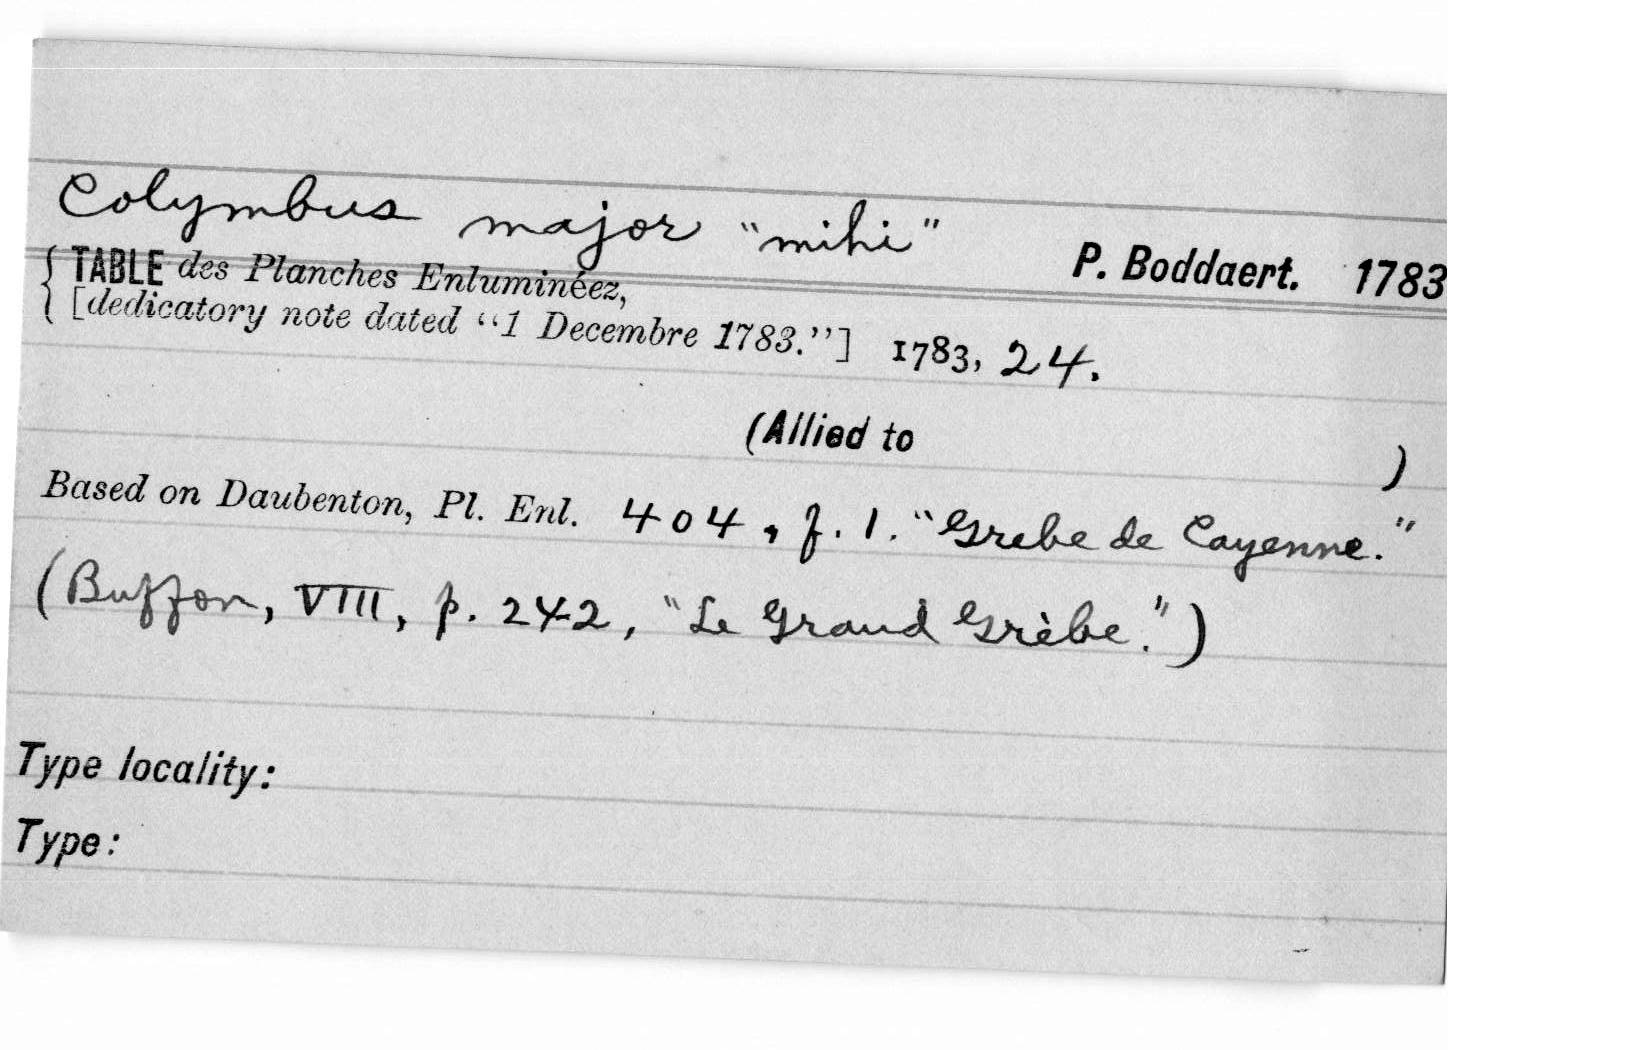 Colymbus major "mihi"
P. Boddaert. 1783
{ TABLE des Planches Enluminéez,
[dedicatory note dated "1 Decembre 1783."] 1783, 24.
(Allied to )
Based on Daubenton, Pl. Enl. 404, f. 1. "Grebe de Cayenne."
(Buffon, VIII, p. 242, "Le Grand Grèbe.")
Type locality:
Type: